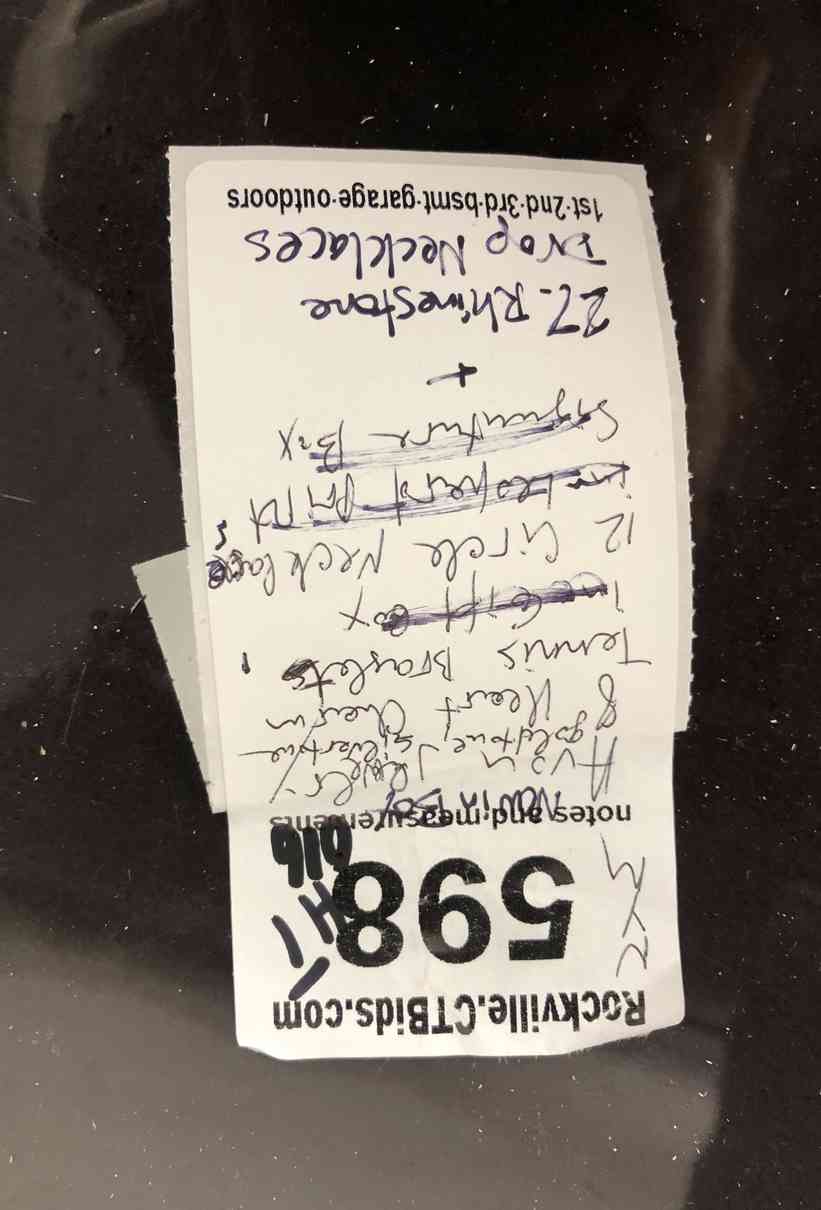 Rockville.CTBids.com
598
notes and measurements
New in Box
Avon Jewelry
goldtone, silvertone
8 Heart Charm
Tennis Braslets
in Gift Box
12 Circle Necklaces
in Leopard Print
Signature Box
+
27 - Rhinestone
Drop Necklaces
1st·2nd·3rd·bsmt·garage·outdoors